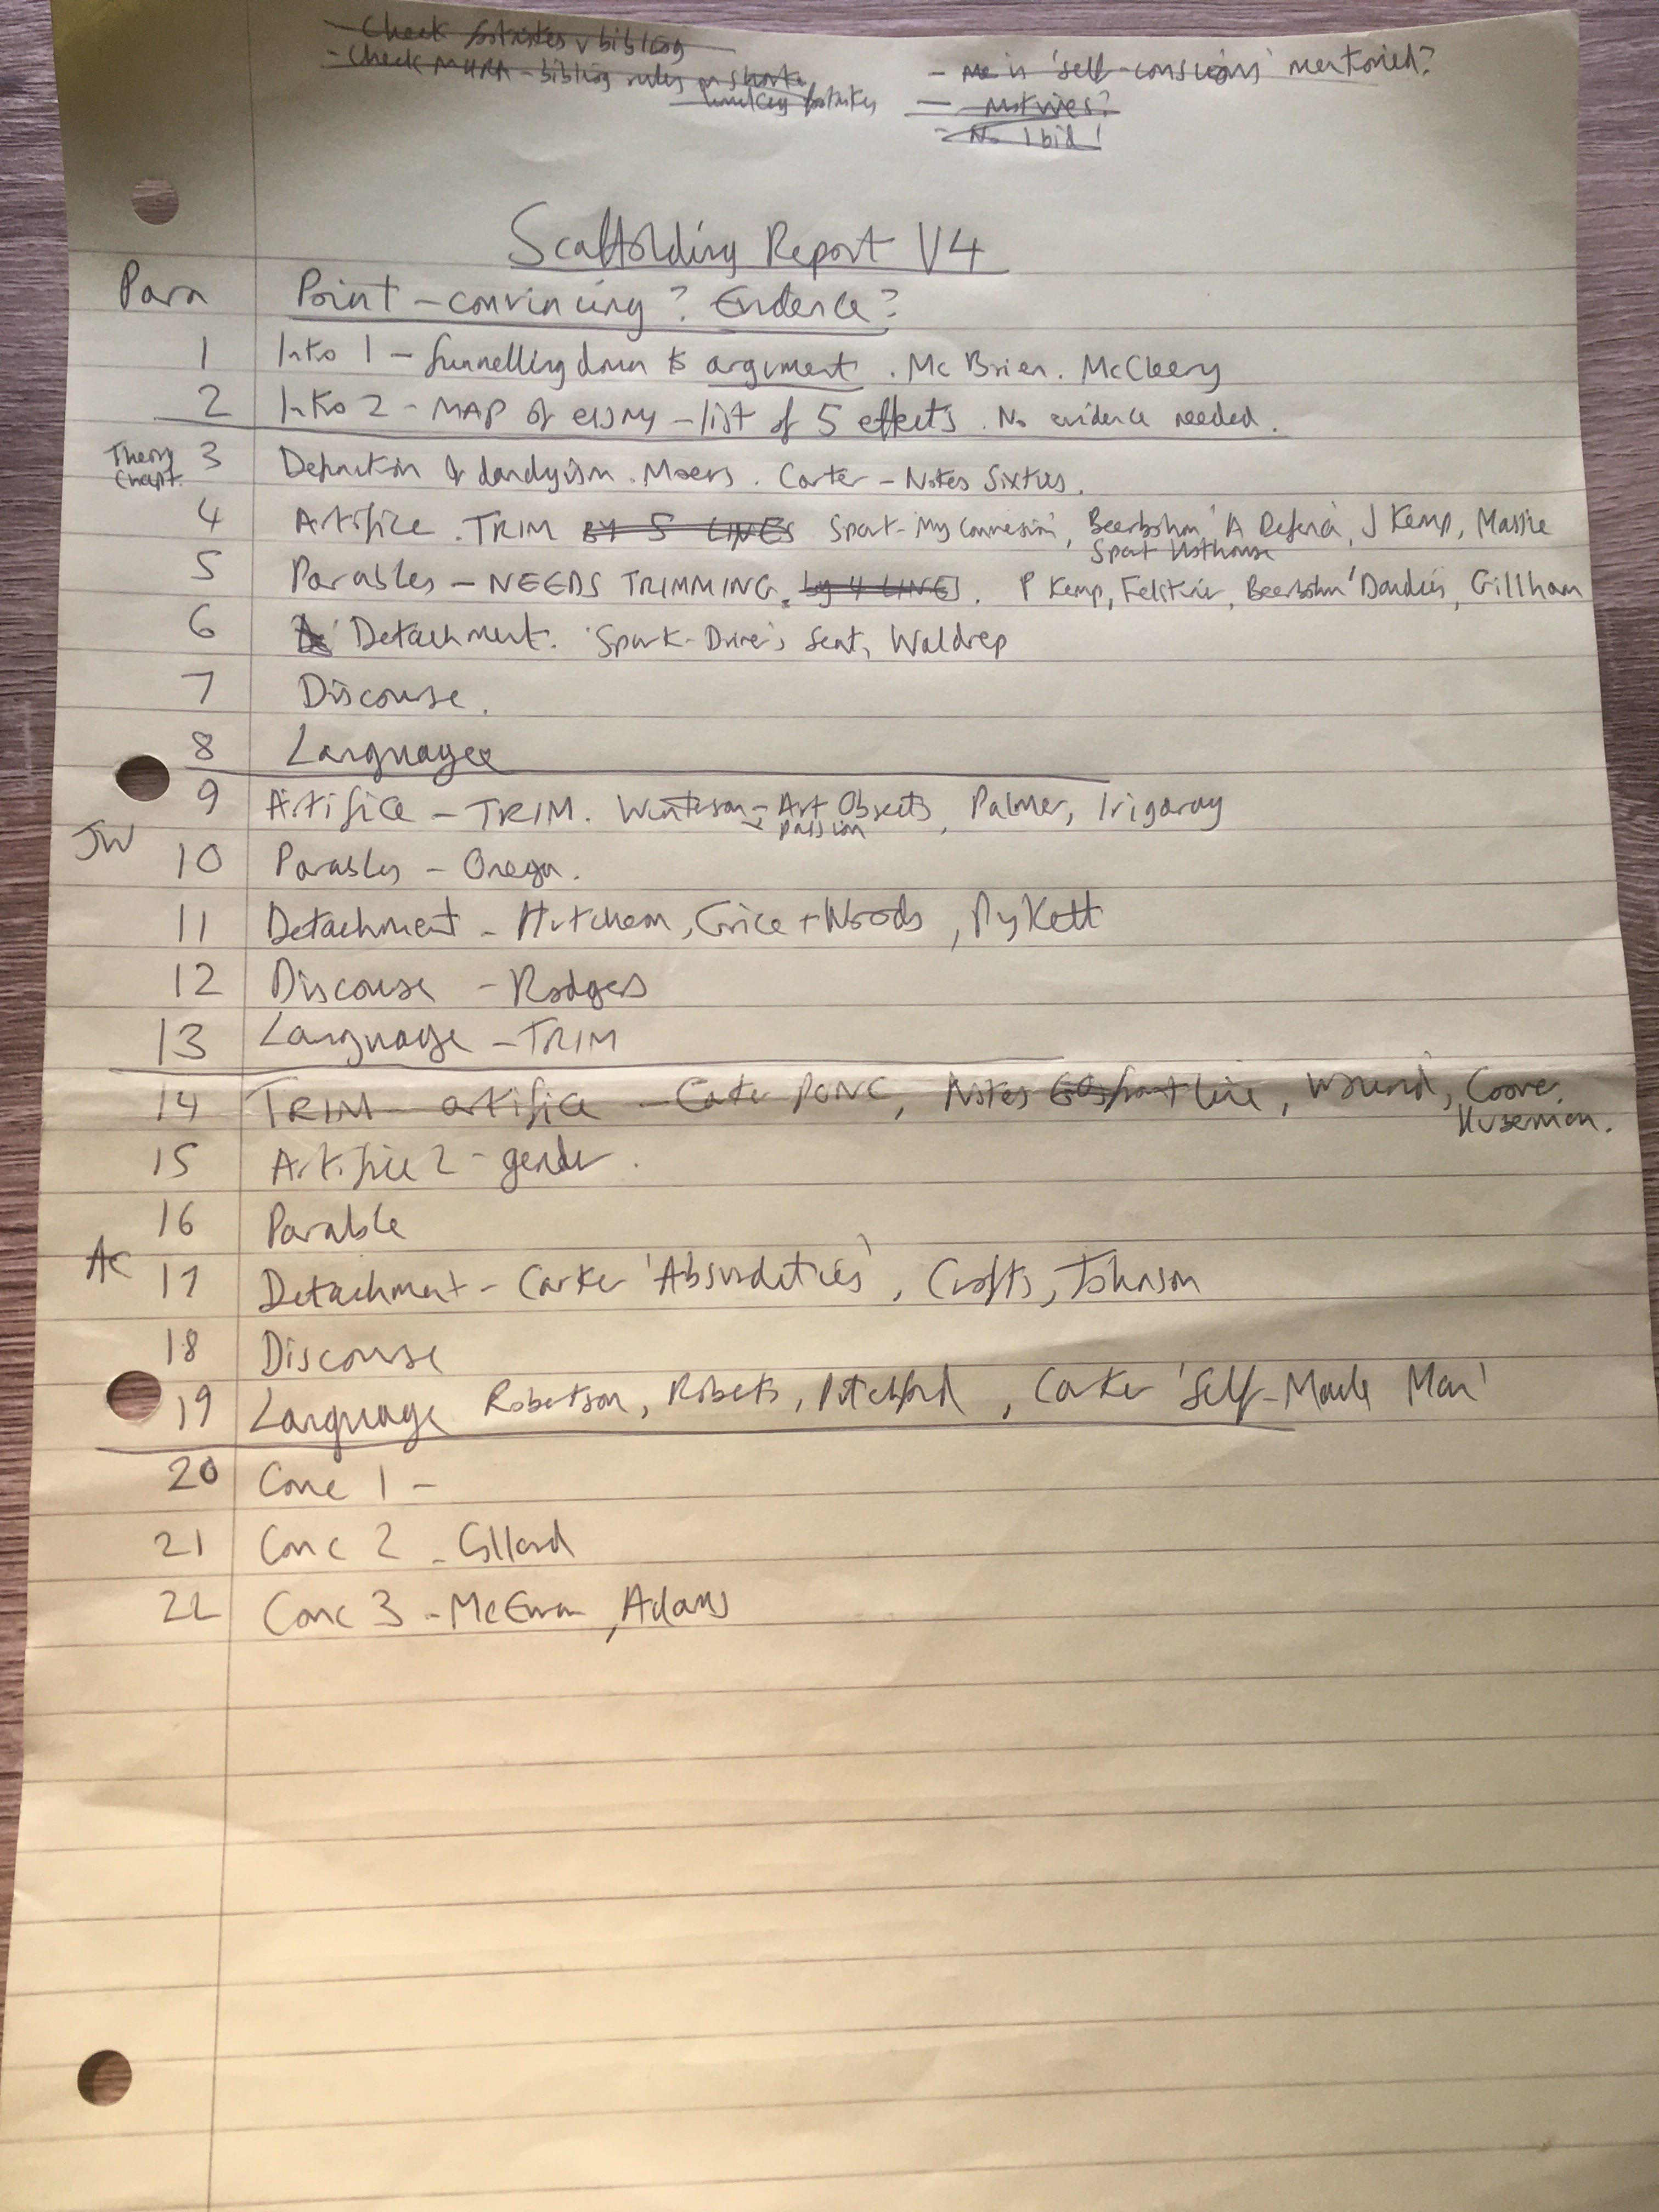 - Check footnotes v bibliog
- Check MHRA - bibliog rules on shorte
footnotes
- is 'self-conscious' mentioned?
- No Ibid!
Scaffolding Report V4
Para Point - convincing? Evidence?
1 Intro 1 - funnelling down to argument. McBrien. McCleery
2 Intro 2 - MAP of essay - list of 5 effects. No evidence needed.
Theory Chapt. 3 Definition of dandyism. Moers. Carter - Notes Sixties.
4 Artifice. TRIM BY 5 LINES Spark - 'My Conversion', Beerbohm 'A Defence', J Kemp, Massie
Spark Hothouse
5 Parables - NEEDS TRIMMING. by 4 LINES. P Kemp, Felstiner, Beerbohm 'Dandies', Gillham
6 Detachment. Spark - Driver's Seat, Waldrep
7 Discourse.
8 Language
9 Artifice - TRIM. Winterson - Art Objects, Palmer, Irigaray
passion
JW 10 Parables - Onega.
11 Detachment - Hutcheon, Grice + Woods, Pykett
12 Discourse - Rodgers
13 Language - TRIM
14 TRIM - artifice - Carter PONC, Notes frontline, Wound, Coover,
Huseman.
15 Artifice 2 - gender.
16 Parable
AC 17 Detachment - Carter 'Absurdities', Crofts, Johnson
18 Discourse
19 Language Robertson, Roberts, Pitchford, Carter 'Self-Made Man'
20 Conc 1 -
21 Conc 2 -
22 Conc 3 - McEwan, Adams